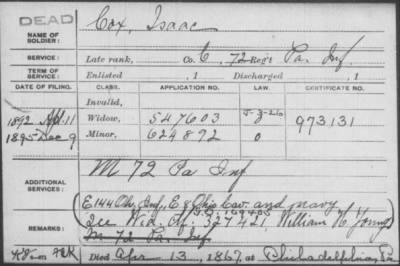 DEAD
NAME OF SOLDIER: Cox, Isaac
SERVICE: Late rank, Co. C, 72 Reg't Pa. Inf.
TERM OF SERVICE: Enlisted , 1 Discharged , 1
DATE OF FILING. CLASS. APPLICATION NO. LAW. CERTIFICATE NO.
Invalid,
1892 Apl. 11 Widow, 547603 973131
1895 Dec 9 Minor, 624892 0
ADDITIONAL SERVICES: M 72 Pa Inf
(E 144 Oh. Inf, E 8 Ohio Cav. and navy
REMARKS: See Wid. Of. 327421, William H. Young)
M 72 Pa. Inf
Died Apr 13, 1867, at Philadelphia, Pa